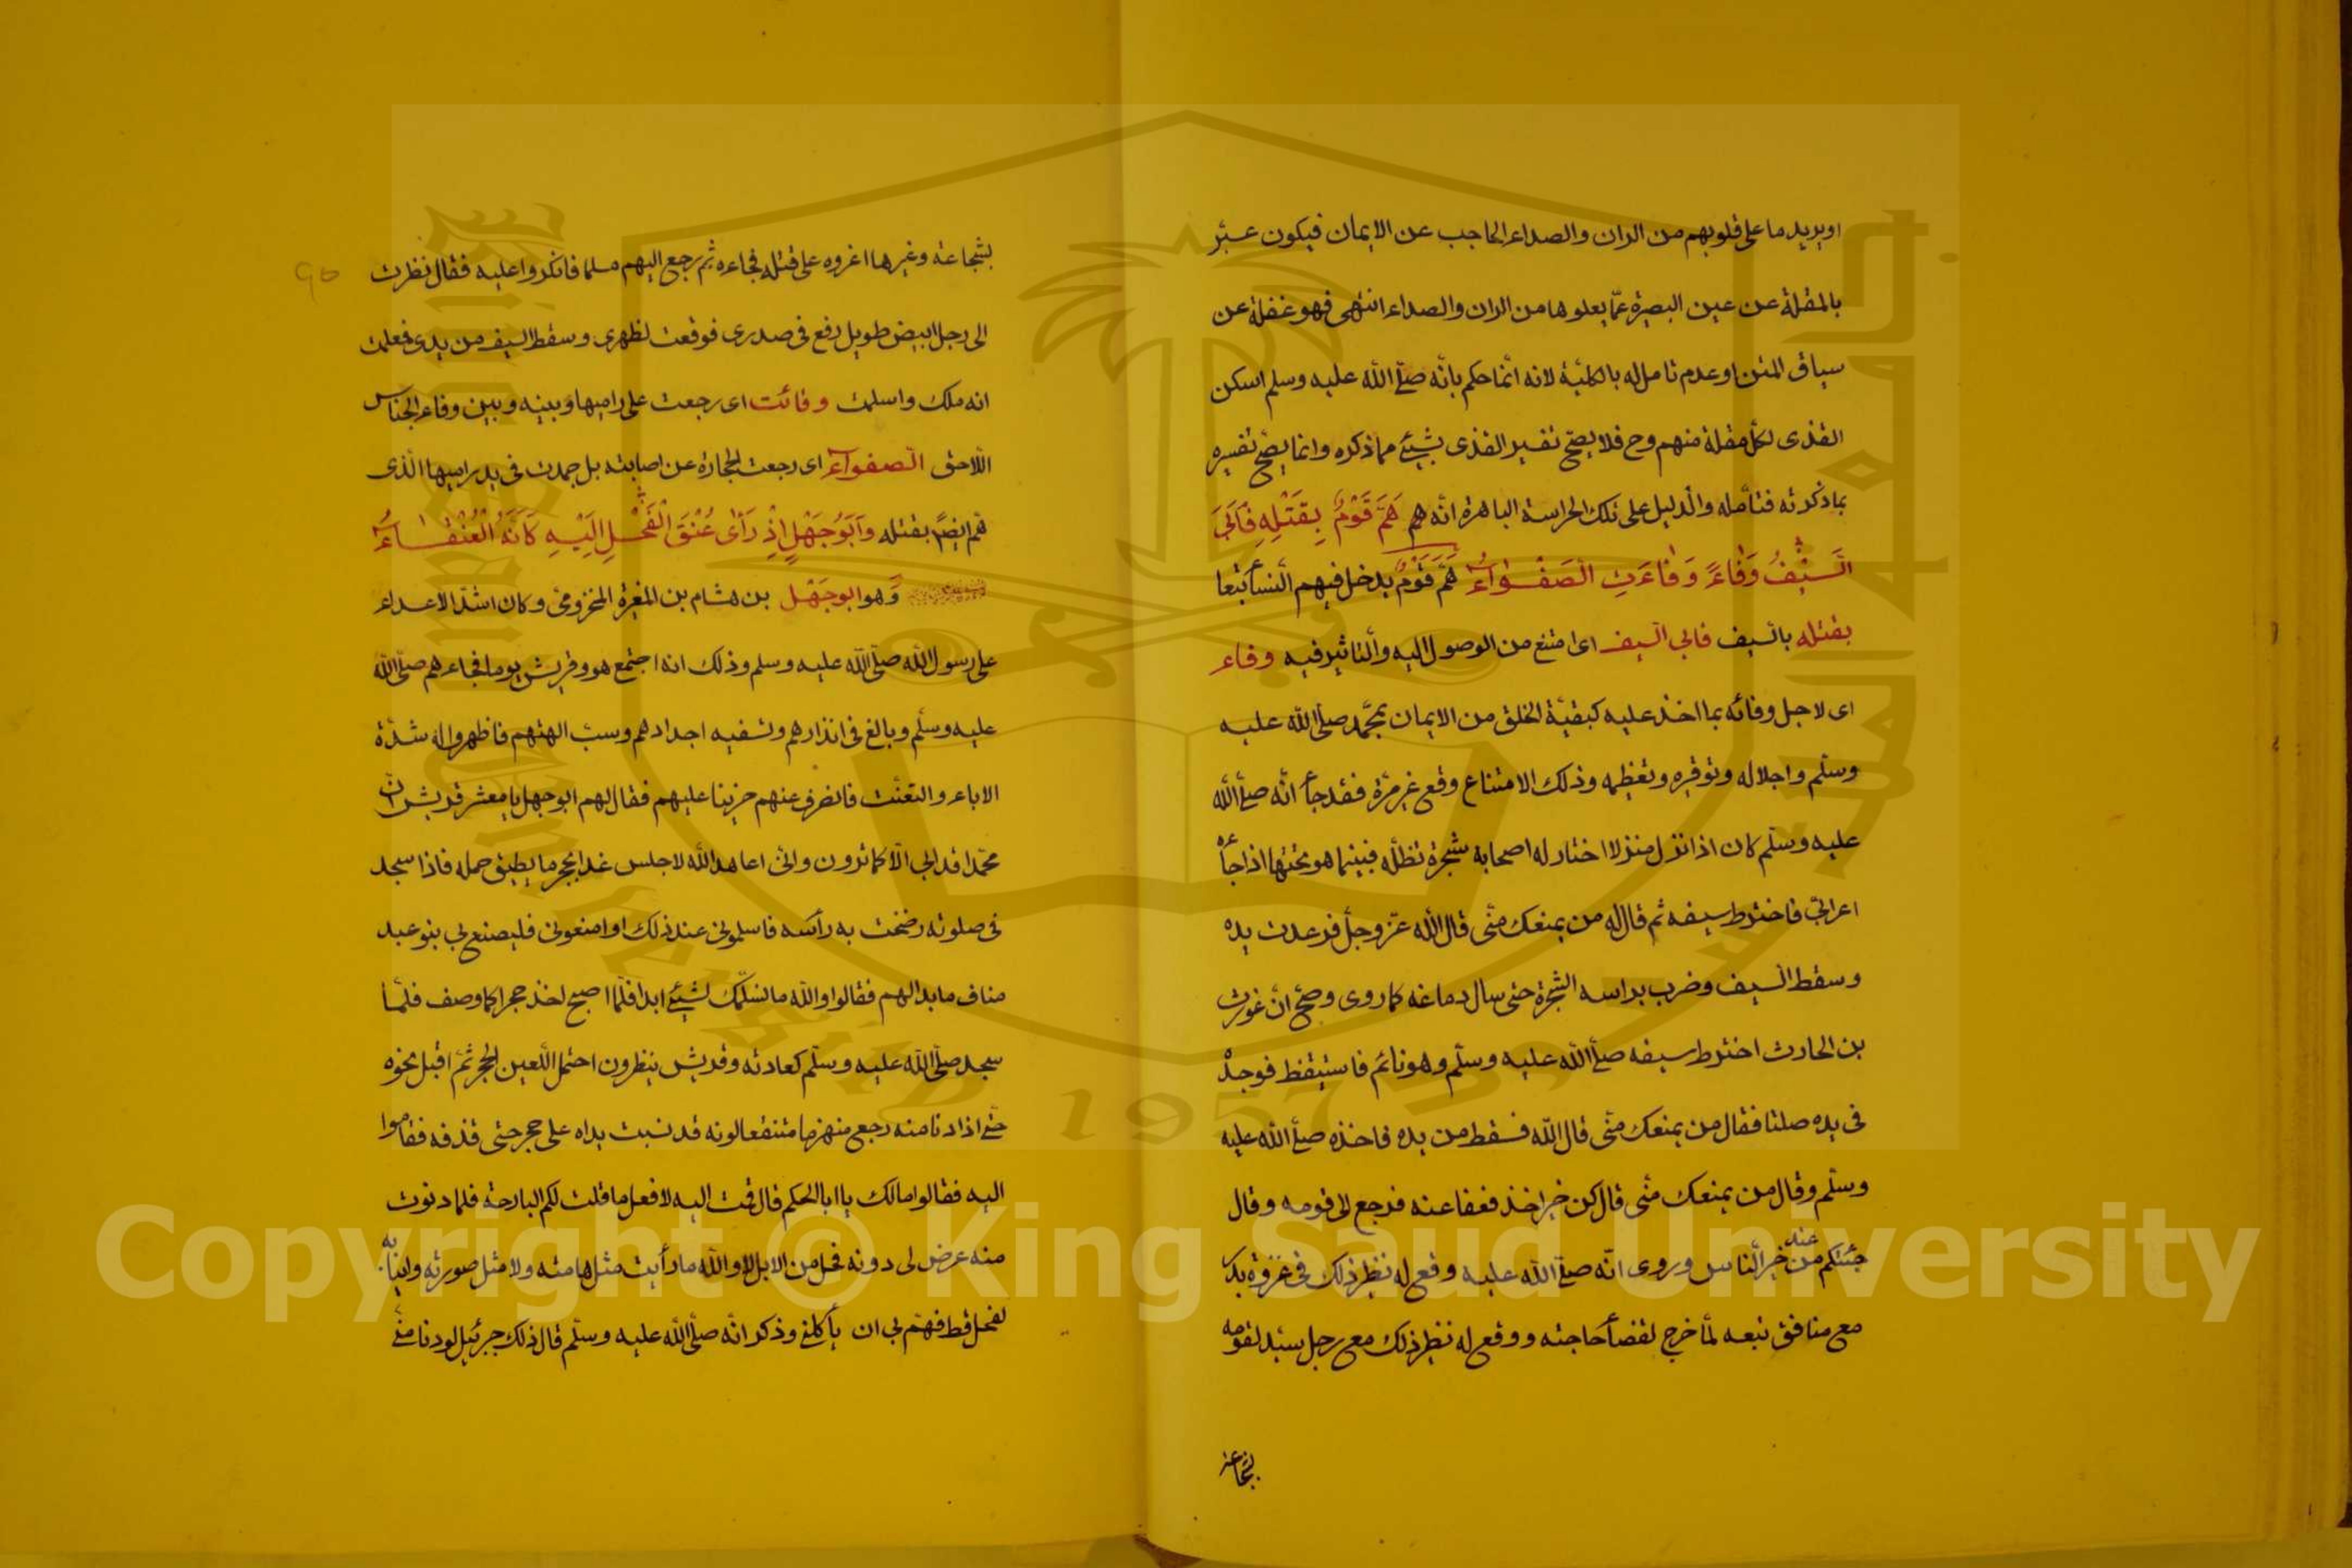 او يريد ما على قلوبهم من الران والصداء الحاجب عن الايمان فيكون عبّر
بالمقلة عن عين البصيرة عمّا يعلوها من الران والصداء انتهى فهو غفلة عن
سياق المتن او عدم تامل له بالكلية لانه انما حكم بانّه صلّى الله عليه وسلم اسكن
القذى لكل مقلة منهم وح فلا يصحّ تفسير القذى بشيئ مما ذكره وانما يصحّ تفسيره
بما ذكرته فتأمله والدليل على تلك الحراسة الباهرة انّه هم هَمَّ قَوْمٌ بِقَتْلِهِ فَاَبَى
السَّيْفُ وَفَاءً وَفَاءَتِ الصَّفْوَاءُ هَمَّ قَوْمٌ يدخل فيهم النسأ تبعا
بقتله بالسيف فابى السيف اى امتنع من الوصول اليه والتاثير فيه وفاء
اى لاجل وفائه بما اخذ عليه كبقيّة الخلق من الايمان بمحمّد صلى الله عليه
وسلّم واجلاله وتوقيره وتعظيمه وذلك الامتناع وقع غير مرّة فقد جأ انّه صلى الله
عليه وسلّم كان اذا نزل منزلا اختار له اصحابه شجرة تظلّه فبينما هو تحتها اذا جأه
اعرابيّ فاخترط سيفه ثم قال له من يمنعك منّى قال الله عزّ وجلّ فرعدت يده
وسقط السيف وضرب براسه الشجرة حتى سال دماغه كما روى وصحّ انّ غورث
بن الحارث اخترط سيفه صلى الله عليه وسلّم وهو نائم فاستيقظ فوجده
فى يده صلتا فقال من يمنعك منّى قال الله فسقط من يده فاخذه صلى الله عليه
وسلّم وقال من يمنعك منّى قال كن خير اخذ فعفا عنه فرجع الى قومه وقال
جئتكم من عند خير النّاس وروى انّه صلى الله عليه وقع له نظير ذلك فى غزوة بدر
مع منافق تبعه لمّا خرج لقضأ حاجته ووقع له نظير ذلك مع رجل سيّد لقومه
بشجاعة
بشجاعة وغيرها اغروه على قتله فجاءه ثم رجع اليهم مسلما فانكروا عليه فقال نظرت
الى رجل ابيض طويل دفع فى صدرى فوقعت لظهرى وسقط السيف من يدى فعلمت
انه ملك واسلمت وفائت اى رجعت على راميها وبينه وبين وفاء الجناس
اللاحق الصفواء اى رجعت الحجارة عن اصابته بل جمدت فى يد راميها الّذى
همّ ايضًا بقتله وَاَبُو جَهْلٍ اِذْ رَأَى عُنُقَ الْفَحْلِ اِلَيْهِ كَاَنَّهُ الْعَنْقَاءُ
وهو ابو جهل بن هشام بن المغيرة المخزومىّ وكان اشدّ الاعداء
على رسول الله صلّى الله عليه وسلم وذلك انه اجتمع هو وقريش يوما فجاءهم صلّى الله
عليه وسلّم وبالغ فى انذارهم وتسفيه اجدادهم وسبّ الهتهم فاظهروا له شدّة
الاباء والتعنّت فانصرف عنهم حزينا عليهم فقال لهم ابو جهل يا معشر قريش انّ
محمّدا قد ابى الّا كما ترون وانّى اعاهد الله لاجلس غدا بحجر ما يطيق حمله فاذا سجد
فى صلوته رضخت به رأسه فاسلمونى عند ذلك او امنعونى فليصنع بى بنو عبد
مناف ما بدا لهم فقالوا والله ما نسلّمك لشيئ ابدا فلمّا اصبح اخذ حجرا كما وصف فلمّا
سجد صلّى الله عليه وسلّم كعادته وقريش ينظرون احتمل اللّعين الحجر ثمّ اقبل نحوه
حتّى اذا دنا منه رجع منهزما منتقعا لونه قد نسبت يداه على حجر حتّى قذفه فقاموا
اليه فقالوا ما لك يا ابا الحكم قال قمت اليه لافعل ما قلت لكم البارحة فلما دنوت
منه عرض لى دونه فحل من الابل لا والله ما رأيت مثل هامته ولا مثل صورته وانيابه
لفحل قط فهمّ بى ان يأكلنى وذكر انّه صلّى الله عليه وسلّم قال ذلك جبرئيل لو دنا منّى
Copyright © King Saud University
1957